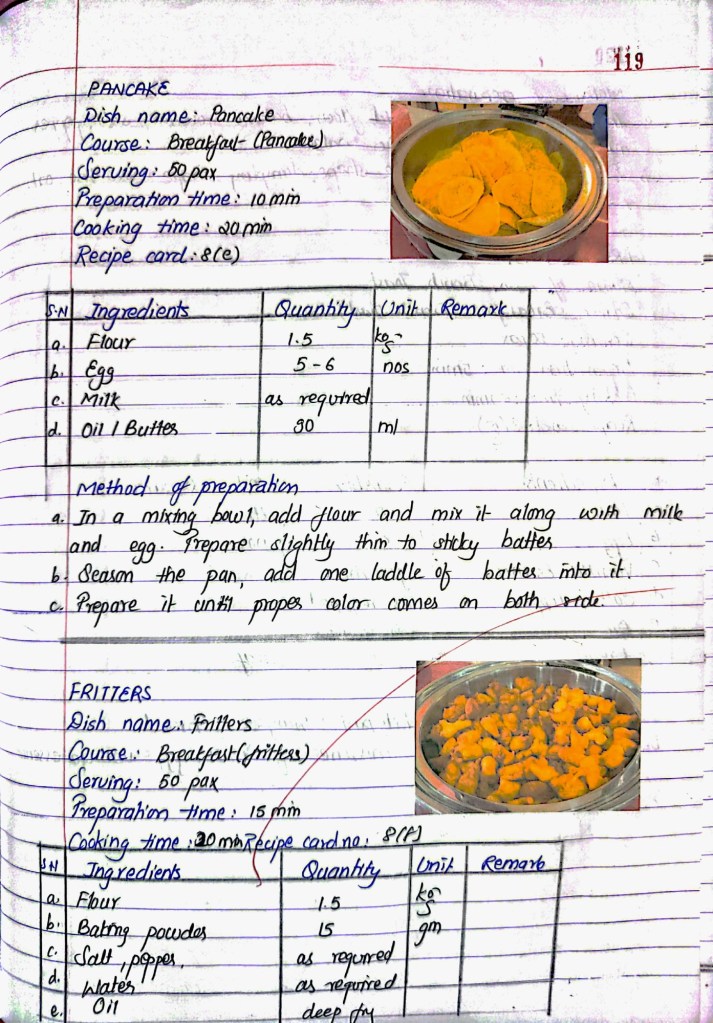 119
PANCAKE
Dish name: Pancake
Course: Breakfast (Pancake)
Serving: 50 pax
Preparation time: 10 min
Cooking time: 20 min
Recipe card: 8(e)
S.N Ingredients Quantity Unit Remark
a. Flour 1.5 kg
b. Egg 5-6 nos
c. Milk as required
d. Oil / Butter 90 ml
Method of preparation
a. In a mixing bowl, add flour and mix it along with milk
and egg. Prepare slightly thin to sticky batter
b. Season the pan, add one laddle of batter into it.
c. Prepare it until proper color comes on both side.
FRITTERS
Dish name: Fritters
Course: Breakfast (fritters)
Serving: 50 pax
Preparation time: 15 min
Cooking time: 20 min Recipe card no: 8(f)
S.N Ingredients Quantity Unit Remark
a. Flour 1.5 kg
b. Baking powder 15 gm
c. Salt, pepper, as required
d. Water as required
e. Oil deep fry